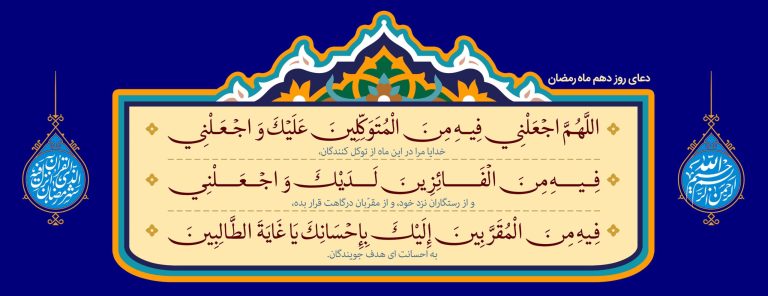 دعای روز دهم ماه رمضان
اللَّهُمَّ اجْعَلْنِي فِيهِ مِنَ الْمُتَوَكِّلِينَ عَلَيْكَ وَ اجْعَلْنِي
خدایا مرا در این ماه از توکل کنندگان،
فِيهِ مِنَ الْفَائِزِينَ لَدَيْكَ وَ اجْعَلْنِي
و از رستگاران نزد خود، و از مقرّبان درگاهت قرار بده،
فِيهِ مِنَ الْمُقَرَّبِينَ إِلَيْكَ بِإِحْسَانِكَ يَا غَايَةَ الطَّالِبِينَ
به احسانت ای هدف جویندگان.
بسم الله الرحمن الرحیم
شهر رمضان الذی انزل فیه القرآن